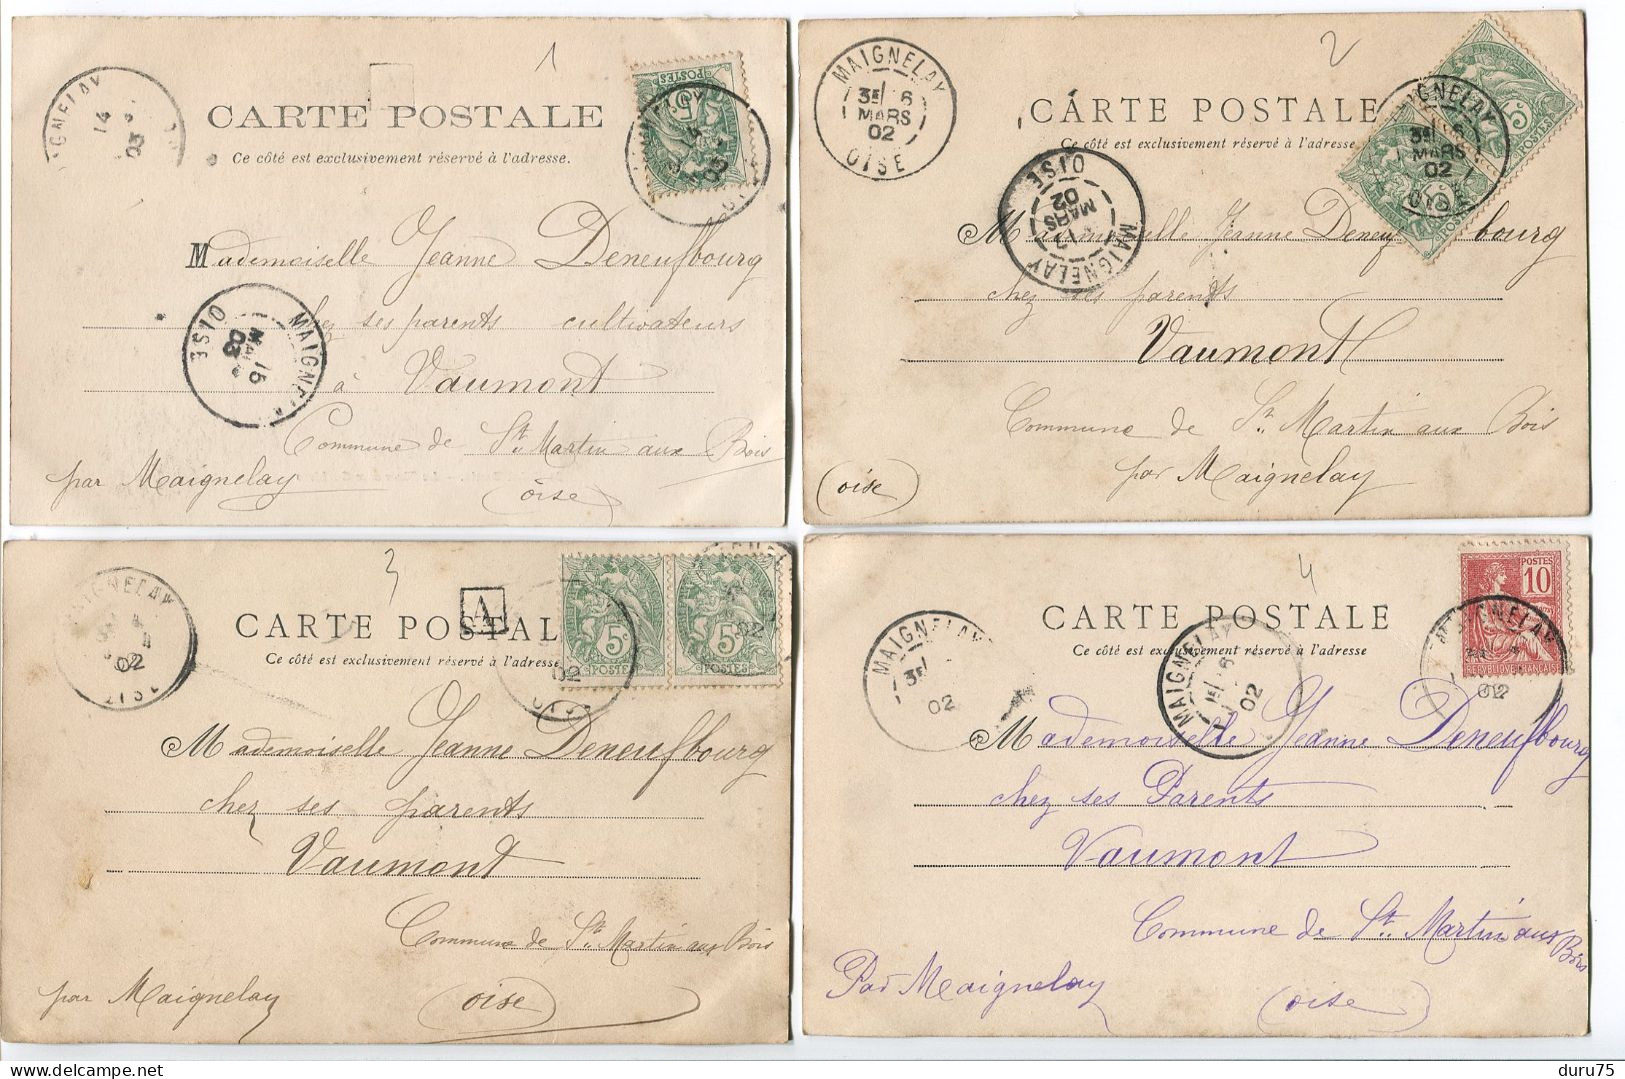 1
MAIGNELAY
14
03
CARTE POSTALE
Ce côté est exclusivement réservé à l'adresse.
5
POSTES
14
03
Mademoiselle Jeanne Deneufbourg
chez ses parents cultivateurs
à Vaumont
Commune de St Martin aux Bois
par Maignelay (oise)
MAIGNELAY
15
MAR
03
OISE
2
MAIGNELAY
3E 6
MARS
02
OISE
CARTE POSTALE
Ce côté est exclusivement réservé à l'adresse
5c
POSTES
MAIGNELAY
3E 6
MARS
02
OISE
MAIGNELAY
MARS
02
OISE
Mademoiselle Jeanne Deneufbourg
chez ses parents
Vaumont
Commune de St Martin aux Bois
par Maignelay
(oise)
3
MAIGNELAY
02
OISE
A
CARTE POSTALE
Ce côté est exclusivement réservé à l'adresse
5c 5c
POSTES POSTES
02
Mademoiselle Jeanne Deneufbourg
chez ses parents
Vaumont
Commune de St Martin aux Bois
par Maignelay (oise)
4
MAIGNELAY
3E
02
CARTE POSTALE
Ce côté est exclusivement réservé à l'adresse
POSTES
10
REPUBLIQUE FRANÇAISE
MAIGNELAY
02
MAIGNELAY
1E 6
02
Mademoiselle Jeanne Deneufbourg
chez ses Parents
Vaumont
Commune de St Martin aux Bois
Par Maignelay (oise)
delcampe.net
duru75